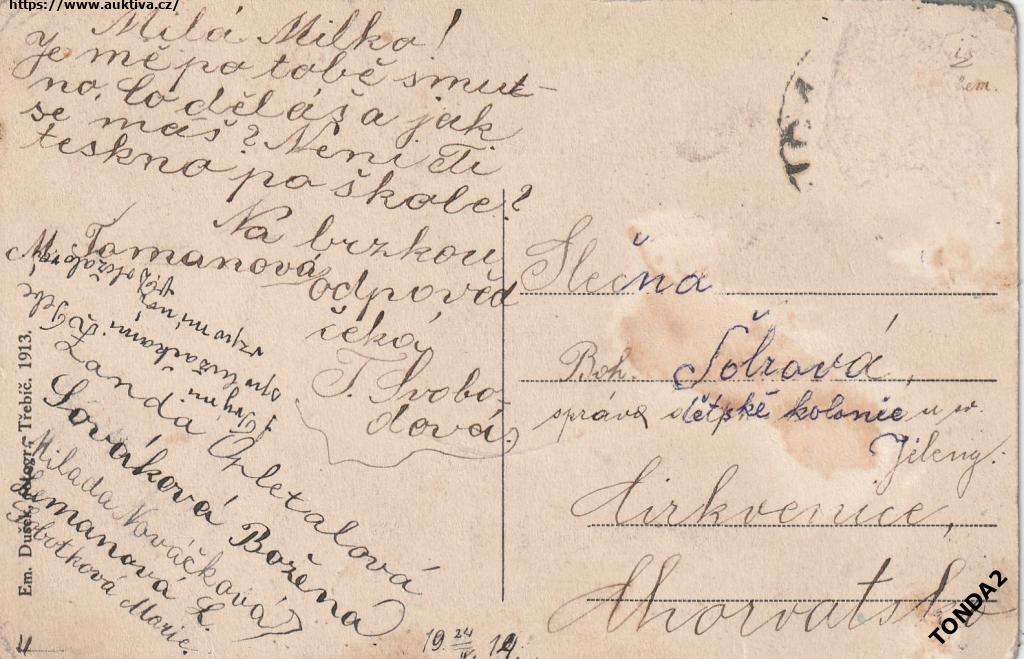 https://www.auktiva.cz/
Milá Milko!
Je mě po tobě smut-
no. Co děláš a jak
se máš? Není Ti
teskno po škole?
Na brzkou
odpověď
čeká
T. Svobo-
dová.
M. Tomanová
Žanda Opletalová
Sováková Božena
Milada Nováčková
Zemanová L.
Sobotková Marie.
Em. Dušek, fotogr., Třebíč. 1913.
19 24 19
Slečna
Boh. Šolzová,
správa dětské kolonie u w.
Jeleny.
Cirkvenice,
Chorvatsko
TONDA2